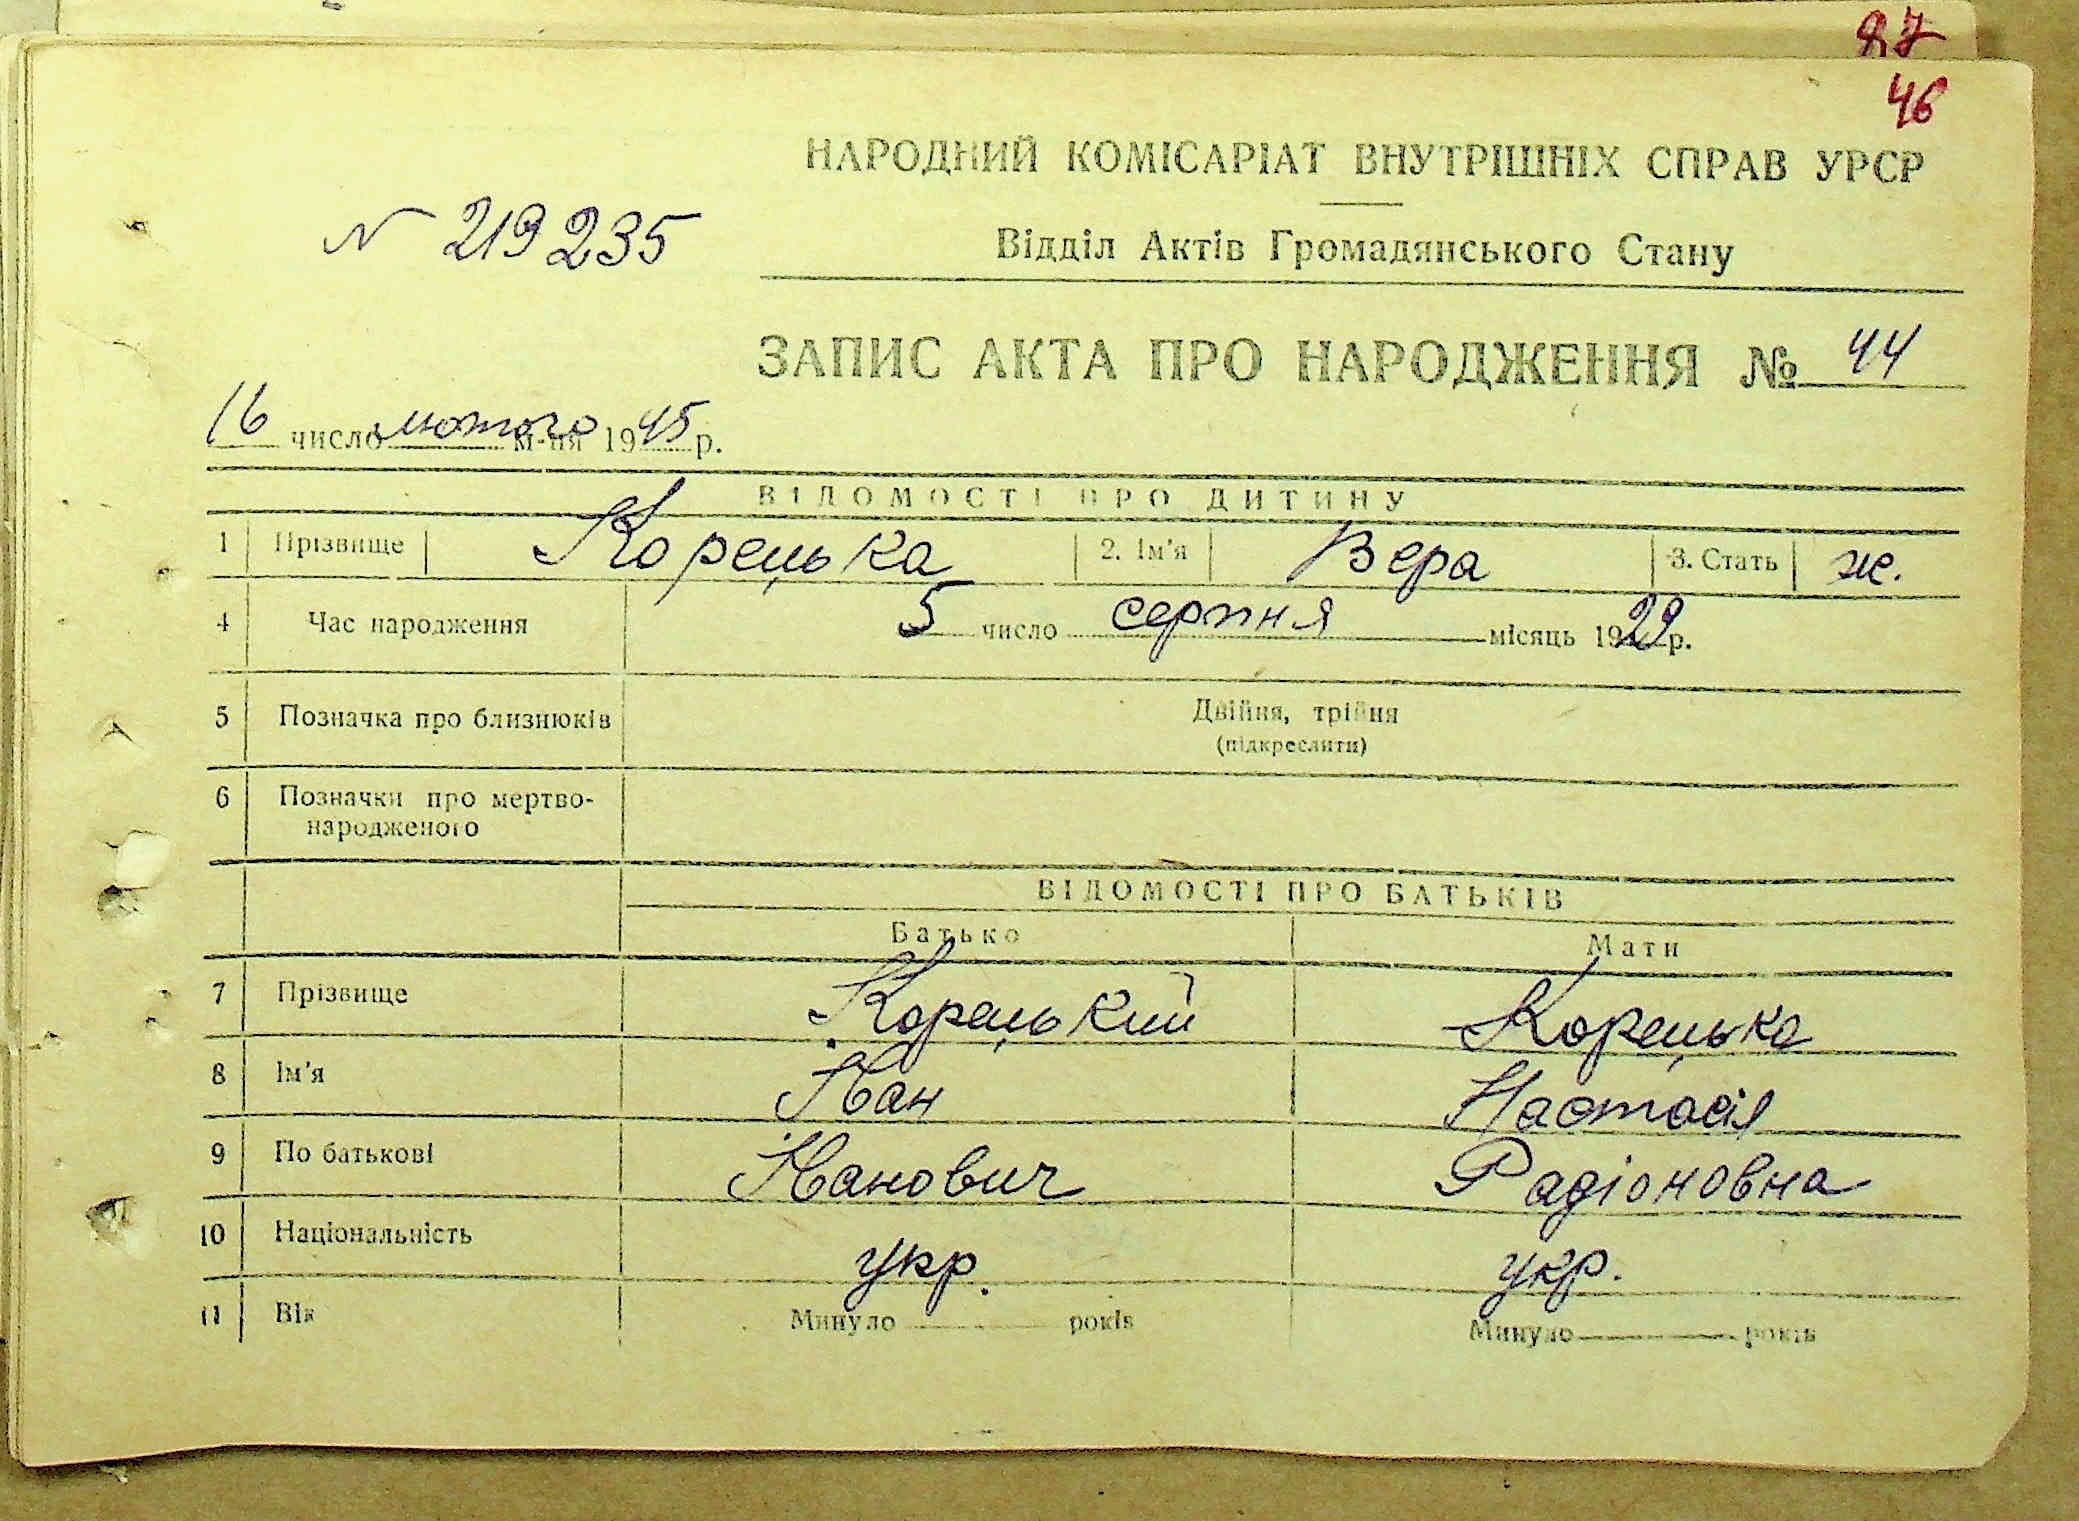 27
46
НАРОДНИЙ КОМІСАРІАТ ВНУТРІШНІХ СПРАВ УРСР
N 219235
Відділ Актів Громадянського Стану
ЗАПИС АКТА ПРО НАРОДЖЕННЯ № 44
16 число лютого м-ця 1945 р.
ВІДОМОСТІ ПРО ДИТИНУ
1 Прізвище Корецька 2. Ім'я Вера 3. Стать ж.
4 Час народження 5 число серпня місяць 1929 р.
5 Позначка про близнюків Двійня, трійня
(підкреслити)
6 Позначки про мертво-
народженого
ВІДОМОСТІ ПРО БАТЬКІВ
Батько Мати
7 Прізвище Корецький Корецька
8 Ім'я Іван Настасія
9 По батькові Іванович Радіоновна
10 Національність укр. укр.
11 Вік Минуло років Минуло років